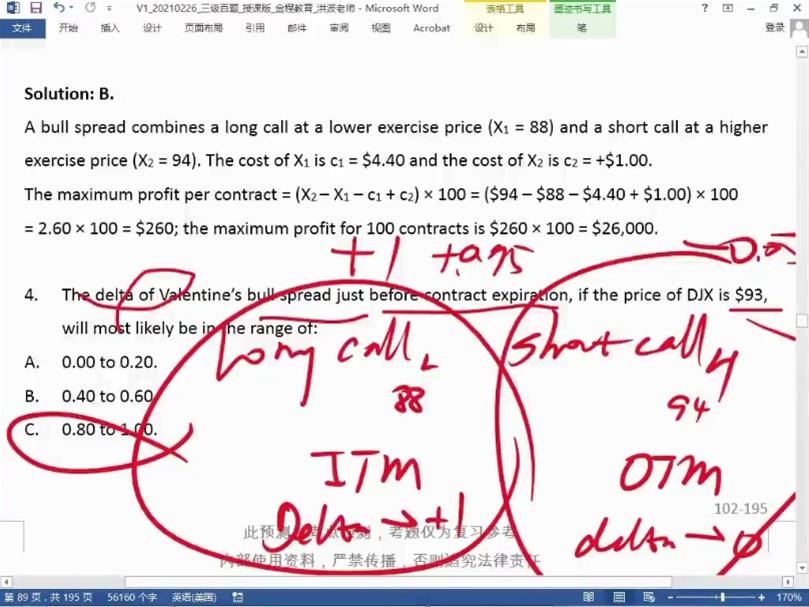 V1_20210226_三级百题_授课版_金程教育_洪波老师 - Microsoft Word
表格工具
墨迹书写工具
文件 开始 插入 设计 页面布局 引用 邮件 审阅 视图 Acrobat 设计 布局 笔 登录
Solution: B.
A bull spread combines a long call at a lower exercise price (X1 = 88) and a short call at a higher
exercise price (X2 = 94). The cost of X1 is c1 = $4.40 and the cost of X2 is c2 = +$1.00.
The maximum profit per contract = (X2 – X1 – c1 + c2) × 100 = ($94 – $88 – $4.40 + $1.00) × 100
= 2.60 × 100 = $260; the maximum profit for 100 contracts is $260 × 100 = $26,000.
+1 +0.95
4. The delta of Valentine's bull spread just before contract expiration, if the price of DJX is $93,
will most likely be in the range of:
long call L short call H
A. 0.00 to 0.20.
B. 0.40 to 0.60
88 94
C. 0.80 to 1.00.
ITM OTM
102-195
Delta → +1 delta → 0
内部使用资料，严禁传播，否则追究法律责任
第 89 页，共 195 页 56160 个字 英语(美国) 170%